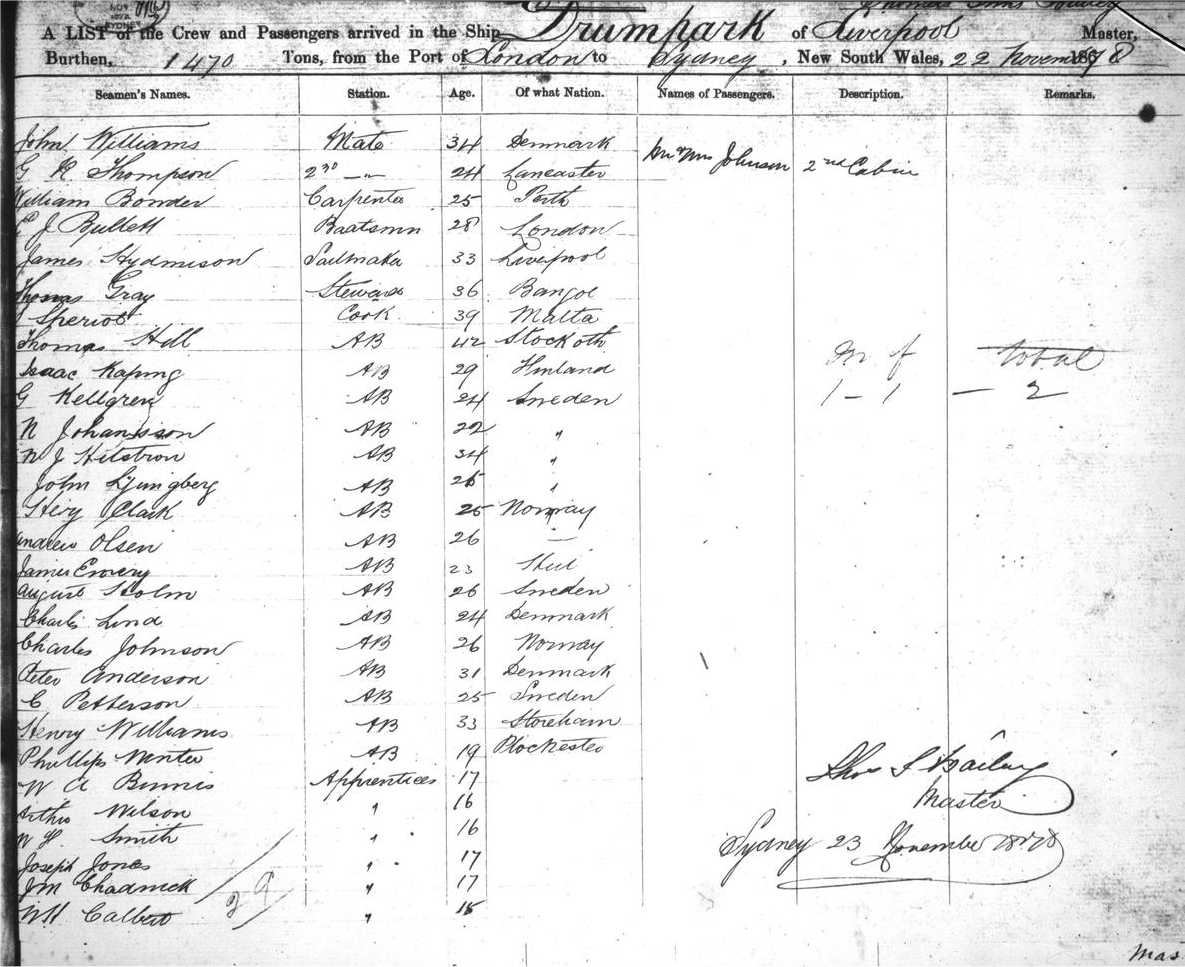 Drumpark of Liverpool
A LIST of the Crew and Passengers arrived in the Ship Master,
Burthen, 1470 Tons, from the Port of London to Sydney, New South Wales, 22 November 1878
Seamen's Names. Station. Age. Of what Nation. Names of Passengers. Description. Remarks.
John Williams Mate 34 Denmark
Mr & Mrs Johnson 2nd Cabin
G R Thompson 2nd —"— 24 Lancaster
William Bonder Carpenter 25 Perth
J Bullett Boatsmn 28 London
James Hydmison Sailmaker 33 Liverpool
Thomas Gray Steward 36 Bangor
Speriot Cook 39 Malta
Thomas Hill AB 42
Isaac Kaping AB 29 Finland
M f Total
G Kellgren AB 24 Sweden
1 – 1 – 2
N Johansson AB 22 "
N J Hilstron AB 34 "
John Ljungberg AB 26 "
Clark AB 25 Norway
Andrew Olsen AB 26 —
James Emery AB 23
August Holm AB 26 Sweden
Charles Lind AB 24 Denmark
Charles Johnson AB 26 Norway
Peter Anderson AB 31 Denmark
C Petterson AB 25 Sweden
Henry Williams AB 33 Storeham
Phillips Winter AB 19
W A Binnis Apprentices 17
Thos S Bailey
Master
Arthur Wilson " 16
W H. Smith " 16
Sydney 23 November 1878
Joseph Jones " 17
JM Chadwick " 17
WH Calbert " 18
29
Mas